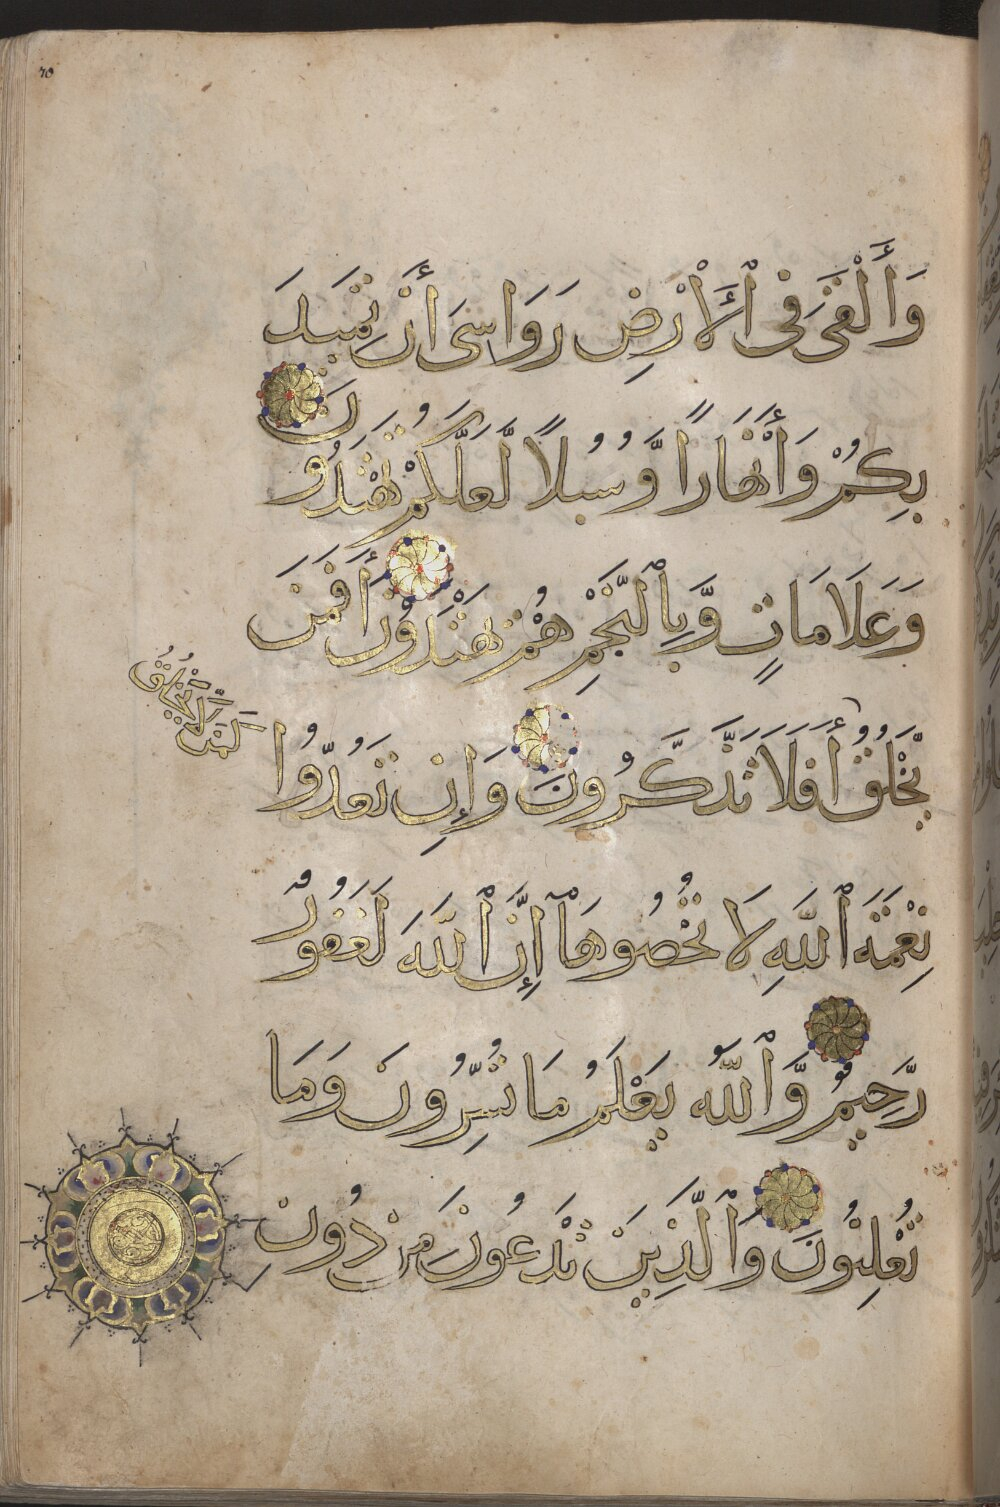 وَأَلْقَىٰ فِى ٱلْأَرْضِ رَوَاسِىَ أَن تَمِيدَ
بِكُمْ وَأَنْهَارًا وَّسُبُلًا لَّعَلَّكُمْ تَهْتَدُونَ
وَعَلَامَاتٍ وَّبِالنَّجْمِ هُمْ يَهْتَدُونَ أَفَمَن
يَّخْلُقُ أَفَلَا تَذَّكَّرُونَ وَإِن تَعُدُّوا
كَمَن لَّا يَخْلُقُ
نِعْمَةَ ٱللَّهِ لَا تُحْصُوهَا إِنَّ ٱللَّهَ لَغَفُورٌ
رَّحِيمٌ وَّٱللَّهُ يَعْلَمُ مَا تُسِرُّونَ وَمَا
تُعْلِنُونَ وَٱلَّذِينَ تَدْعُونَ مِن دُونِ